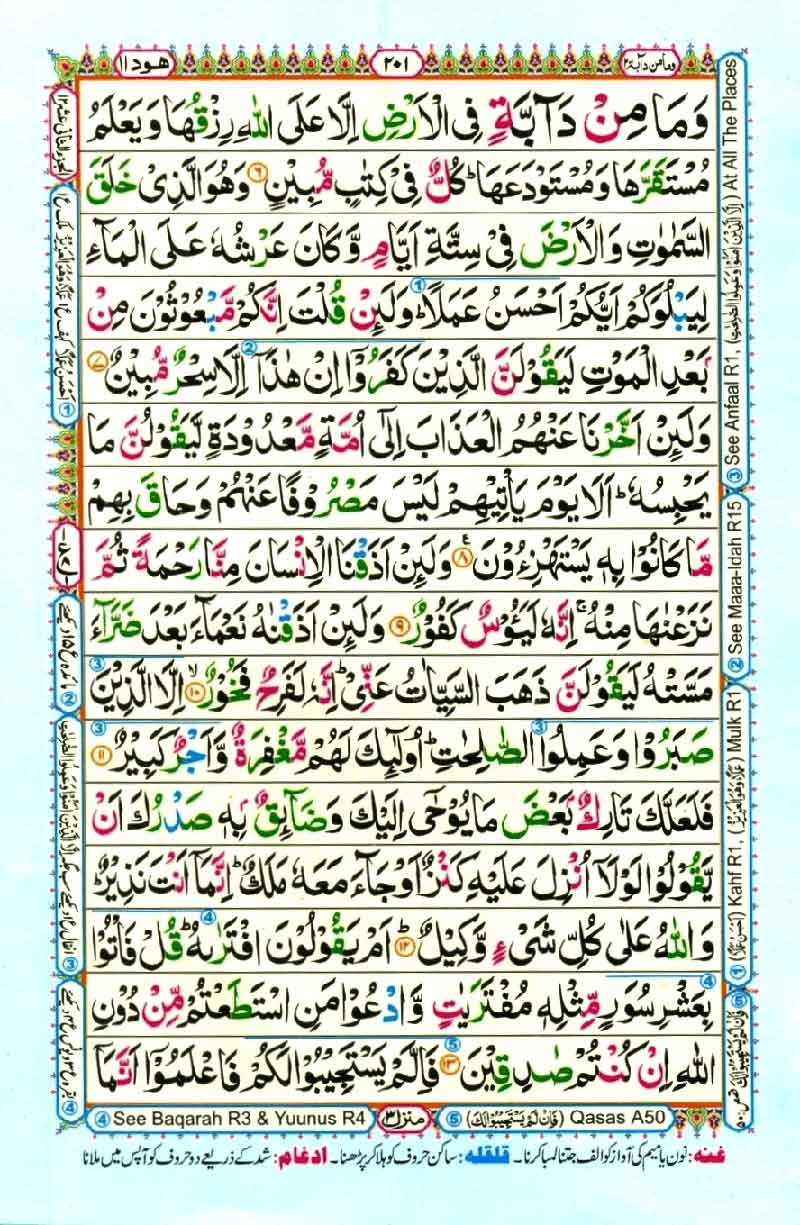 وما من دآبة ١٢
٢٠١
هود ١١
وَمَا مِنْ دَآبَّةٍ فِي الْاَرْضِ اِلَّا عَلَى اللّٰهِ رِزْقُهَا وَيَعْلَمُ
مُسْتَقَرَّهَا وَمُسْتَوْدَعَهَا ؕ كُلٌّ فِيْ كِتٰبٍ مُّبِيْنٍ ۶ وَهُوَ الَّذِيْ خَلَقَ
السَّمٰوٰتِ وَالْاَرْضَ فِيْ سِتَّةِ اَيَّامٍ وَّكَانَ عَرْشُهٗ عَلَى الْمَآءِ
لِيَبْلُوَكُمْ اَيُّكُمْ اَحْسَنُ عَمَلًا ؕ ① وَلَئِنْ قُلْتَ اِنَّكُمْ مَّبْعُوْثُوْنَ مِنْۢ
بَعْدِ الْمَوْتِ لَيَقُوْلَنَّ الَّذِيْنَ كَفَرُوْۤا ② اِنْ هٰذَاۤ اِلَّا سِحْرٌ مُّبِيْنٌ ۷
وَلَئِنْ اَخَّرْنَا عَنْهُمُ الْعَذَابَ اِلٰۤى اُمَّةٍ مَّعْدُوْدَةٍ لَّيَقُوْلُنَّ مَا
يَحْبِسُهٗ ؕ اَلَا يَوْمَ يَاْتِيْهِمْ لَيْسَ مَصْرُوْفًا عَنْهُمْ وَحَاقَ بِهِمْ
مَّا كَانُوْا بِهٖ يَسْتَهْزِءُوْنَ ۸ وَلَئِنْ اَذَقْنَا الْاِنْسَانَ مِنَّا رَحْمَةً ثُمَّ
نَزَعْنٰهَا مِنْهُ ۚ اِنَّهٗ لَيَـُٔوْسٌ كَفُوْرٌ ۹ وَلَئِنْ اَذَقْنٰهُ نَعْمَآءَ بَعْدَ ضَرَّآءَ
مَسَّتْهُ لَيَقُوْلَنَّ ذَهَبَ السَّيِّاٰتُ عَنِّيْ ؕ اِنَّهٗ لَفَرِحٌ فَخُوْرٌ ۙ ۱۰ اِلَّا الَّذِيْنَ ③
صَبَرُوْا وَعَمِلُوا الصّٰلِحٰتِ ؕ ③ اُولٰٓئِكَ لَهُمْ مَّغْفِرَةٌ وَّاَجْرٌ كَبِيْرٌ ۱۱
فَلَعَلَّكَ تَارِكٌۢ بَعْضَ مَا يُوْحٰۤى اِلَيْكَ وَضَآئِقٌۢ بِهٖ صَدْرُكَ اَنْ
يَّقُوْلُوْا لَوْلَاۤ اُنْزِلَ عَلَيْهِ كَنْزٌ اَوْ جَآءَ مَعَهٗ مَلَكٌ ؕ اِنَّمَاۤ اَنْتَ نَذِيْرٌ ؕ
وَاللّٰهُ عَلٰى كُلِّ شَيْءٍ وَّكِيْلٌ ؕ ۱۲ اَمْ يَقُوْلُوْنَ افْتَرٰىهُ ؕ ④ قُلْ فَاْتُوْا
بِعَشْرِ سُوَرٍ مِّثْلِهٖ مُفْتَرَيٰتٍ وَّادْعُوْا مَنِ اسْتَطَعْتُمْ مِّنْ دُوْنِ ④
اللّٰهِ اِنْ كُنْتُمْ صٰدِقِيْنَ ۱۳ ⑤ فَاِلَّمْ يَسْتَجِيْبُوْا لَكُمْ فَاعْلَمُوْۤا اَنَّمَاۤ
③ See Anfaal R1, (اِلَّا الَّذِيْنَ اٰمَنُوْا وَعَمِلُوا الصّٰلِحٰتِ) At All The Places
② See Maaa-Idah R15
① (اَحْسَنُ عَمَلًا) Kahf R1, (عَمَلًا وَهُوَ الْعَزِيْزُ) Mulk R1
④ See Baqarah R3 & Yuunus R4
منزل ٣
⑤ (فَاِنْ لَّمْ يَسْتَجِيْبُوْا لَكَ) Qasas A50
غنه: نون یا میم کی آواز کو الف جتنا لمبا کرنا۔ قلقله: ساکن حروف کو ہلا کر پڑھنا۔ ادغام: شد کے ذریعے دو حروف کو آپس میں ملانا